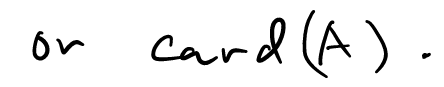 or card(A).